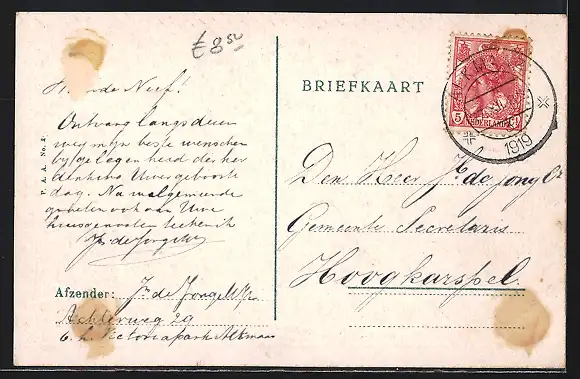 £ 8 50
Waarde Neef!
Ontvang langs dezen
weg mijn beste wenschen
bij gelegenheid der her
denking Uwer geboorte
dag. Na welgemeende
groeten ook aan Uwe
huisgenooten teeken ik
Jn de Jong
P. & A. No. 2.
Afzender: Jn de Jong
Achterweg 29
b. h. Victoriapark Alkmaar
BRIEFKAART
ALKMAAR
1919
5
NEDERLAND
Den Heer Jb. de Jong
Gemeente Secretaris
Hoogkarspel.